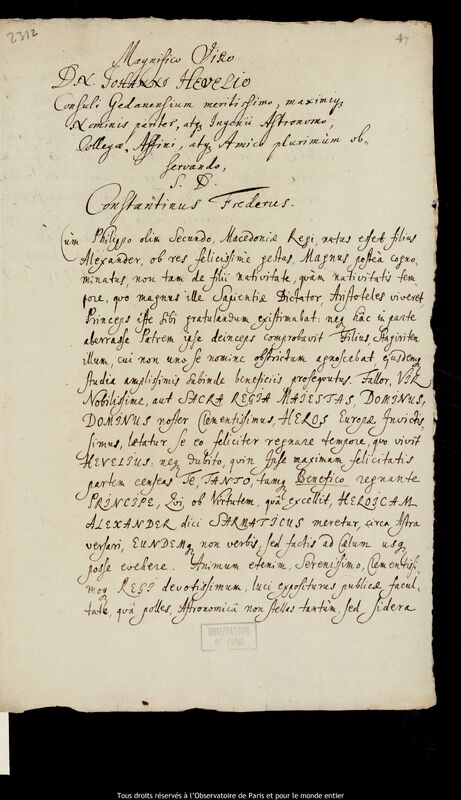 2312
47
Magnifico Viro
Dn. JOHANNI HEVELIO
Consuli Gedanensium meritissimo, maximiq3
Nominis pariter, atq3 Ingenii Astronomo,
Collegæ, Affini, atq3 Amico plurimum ob-
servando,
S. D.
Constantinus Frederus.
Cùm Philippo olim Secundo, Macedoniæ Regi, natus esset filius
Alexander, ob res felicissime gestas, Magnus postea cogno-
minatus, non tam de filii nativitate, quàm nativitatis tem-
pore, quo magnus ille Sapientiæ Dictator, Aristoteles viveret,
Princeps iste sibi gratulandum existimabat: neq3 hac in parte
aberrasse Patrem ipse deinceps comprobavit Filius, Stagiritem
illum, cui non uno se nomine obstrictum agnoscebat ejusdemq3
studia amplissimis subinde beneficiis prosequutus. Fallor, VIR
Nobilissime, aut SACRA REGIA MAJESTAS, DOMINUS,
DOMINUS noster Clementissimus, HEROS Europæ Invictis-
simus, lætatur se eo feliciter regnare tempore, quo vivit
HEVELIUS: neq3 dubito, quin Ipse maximam felicitatis
partem censeas Te, TANTO, tamq3 Benefico regnante
PRINCIPE, Qvi, ob Virtutem, quâ excellit, HEROICAM
ALEXANDER dici SARMATICUS meretur, circa Astra
versari, EUNDEMq3 non verbis, sed factis ad Cælum usq3
posse evehere. Animum etenim, Serenissimo, Clementissi-
moq3 REGI devotissimum, luci expositurus publicæ facul-
tate, quâ polles, Astronomicâ non stellas tantùm, sed sidera
OBSERVATOIRE
DE PARIS
Tous droits réservés à l'Observatoire de Paris et pour le monde entier